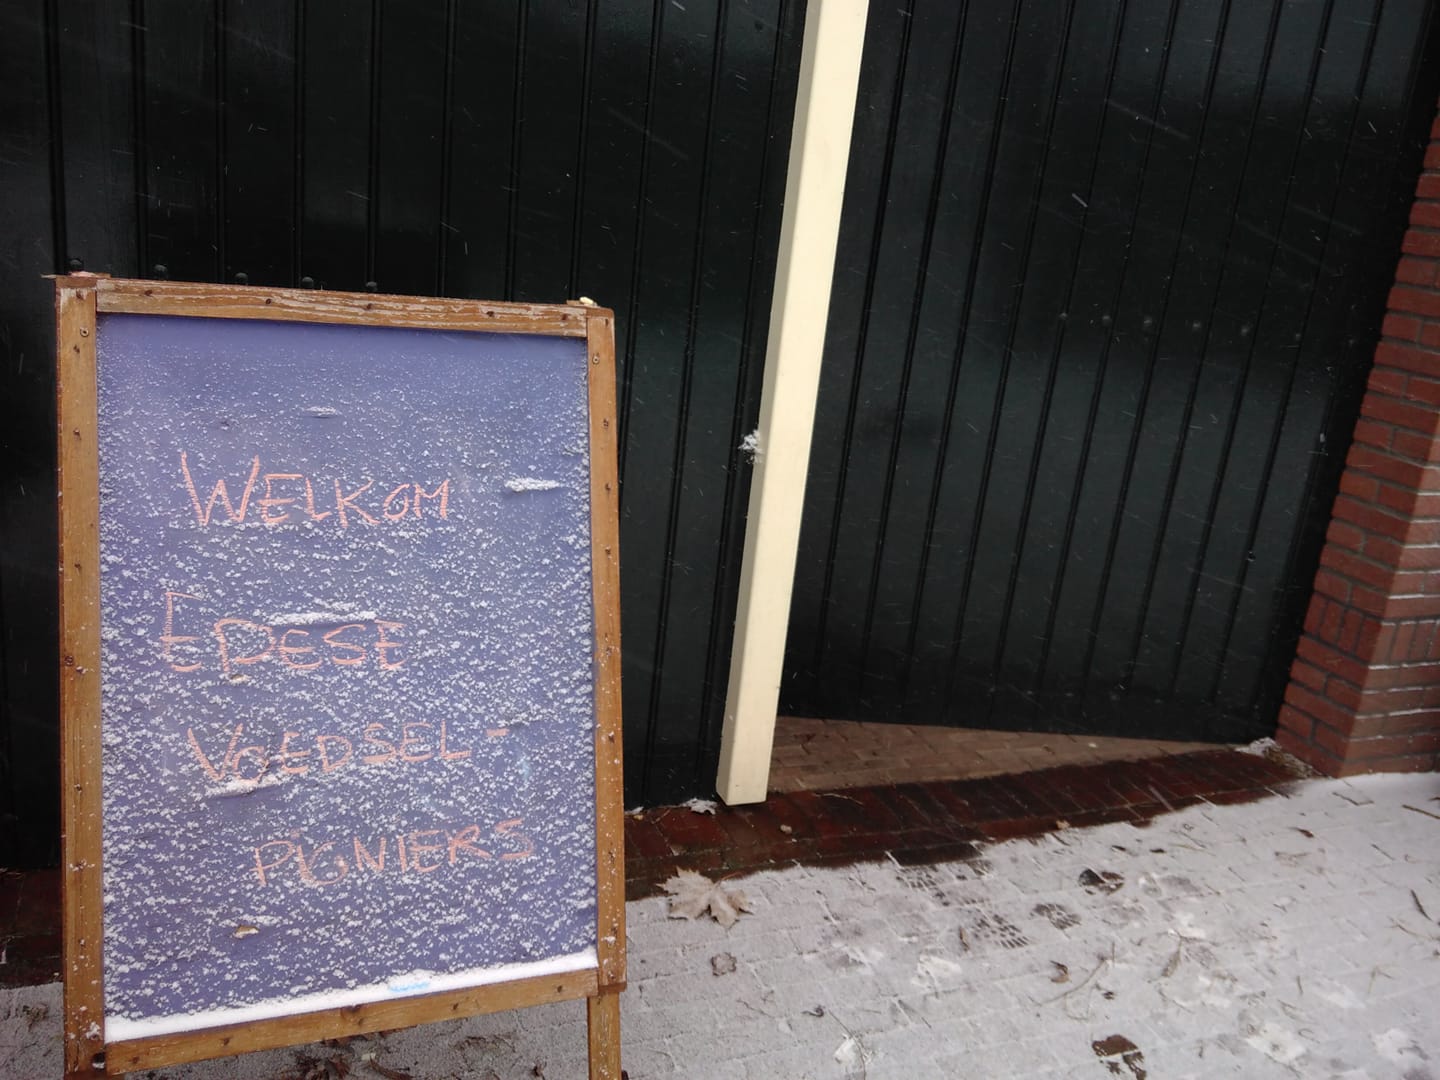 WELKOM
EPESE
VOEDSEL-
PIONIERS